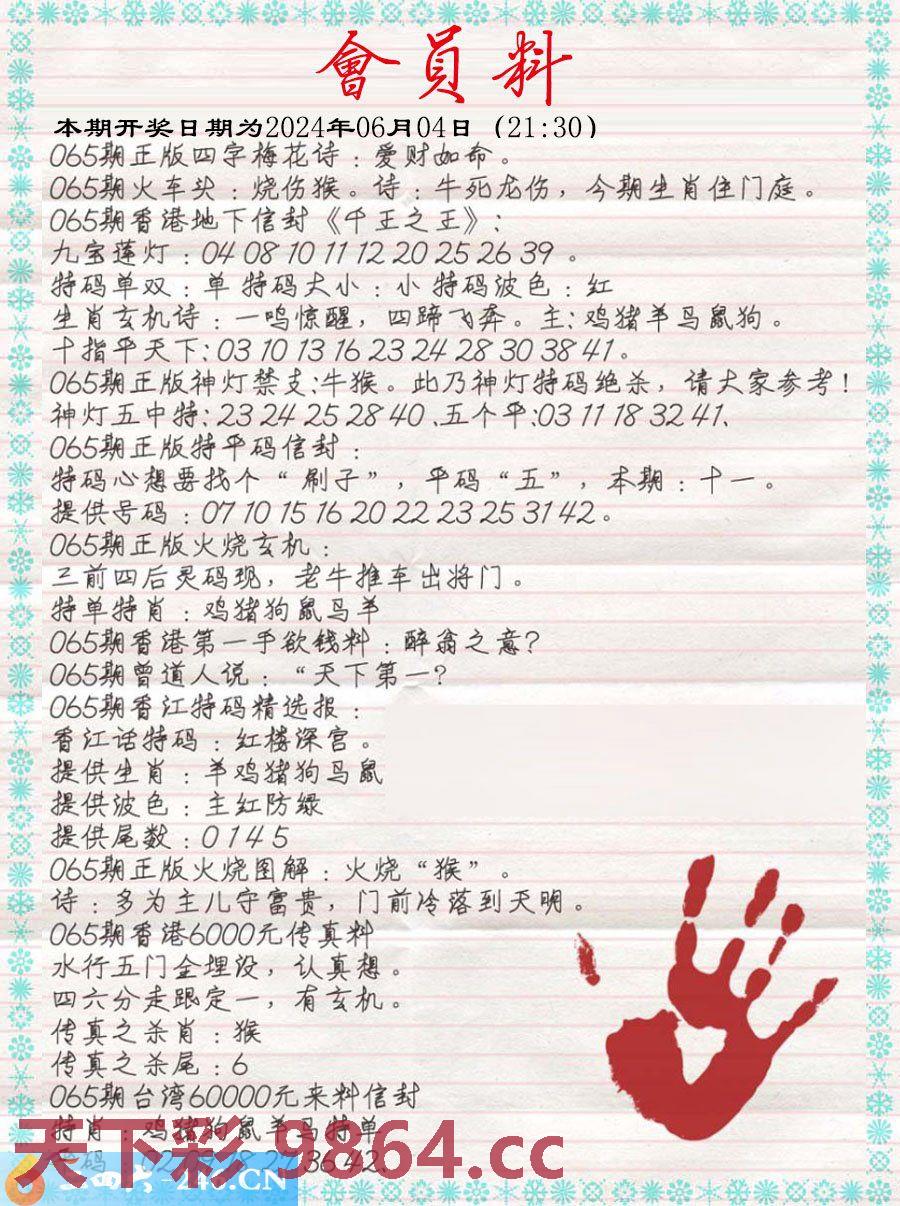 會員料
本期开奖日期为2024年06月04日（21:30）
065期正版四字梅花诗：爱财如命。
065期火车头：烧伤猴。诗：牛死龙伤，今期生肖住门庭。
065期香港地下信封《千王之王》：
九宝莲灯：04 08 10 11 12 20 25 26 39 。
特码单双：单 特码大小：小 特码波色：红
生肖玄机诗：一鸣惊醒，四蹄飞奔。主：鸡猪羊马鼠狗。
十指平天下：03 10 13 16 23 24 28 30 38 41。
065期正版神灯禁支:牛猴。此乃神灯特码绝杀，请大家参考！
神灯五中特：23 24 25 28 40 、五个平:03 11 18 32 41、
065期正版特平码信封：
特码心想要找个“刷子”，平码“五”，本期：十一。
提供号码：07 10 15 16 20 22 23 25 31 42。
065期正版火烧玄机：
三前四后灵码现，老牛推车出将门。
特单特肖：鸡猪狗鼠马羊
065期香港第一手欲钱料：醉翁之意？
065期曾道人说：“天下第一？
065期香江特码精选报：
香江话特码：红楼深宫。
提供生肖：羊鸡猪狗马鼠
提供波色：主红防绿
提供尾数：0 1 4 5
065期正版火烧图解：火烧“猴”。
诗：多为主儿守富贵，门前冷落到天明。
065期香港6000元传真料
水行五门金埋没，认真想。
四六分走跟定一，有玄机。
传真之杀肖：猴
传真之杀尾：6
065期台湾60000元来料信封
特肖：鸡猪狗鼠羊马特单
天下彩-9864.cc
36 42、
-246.CN